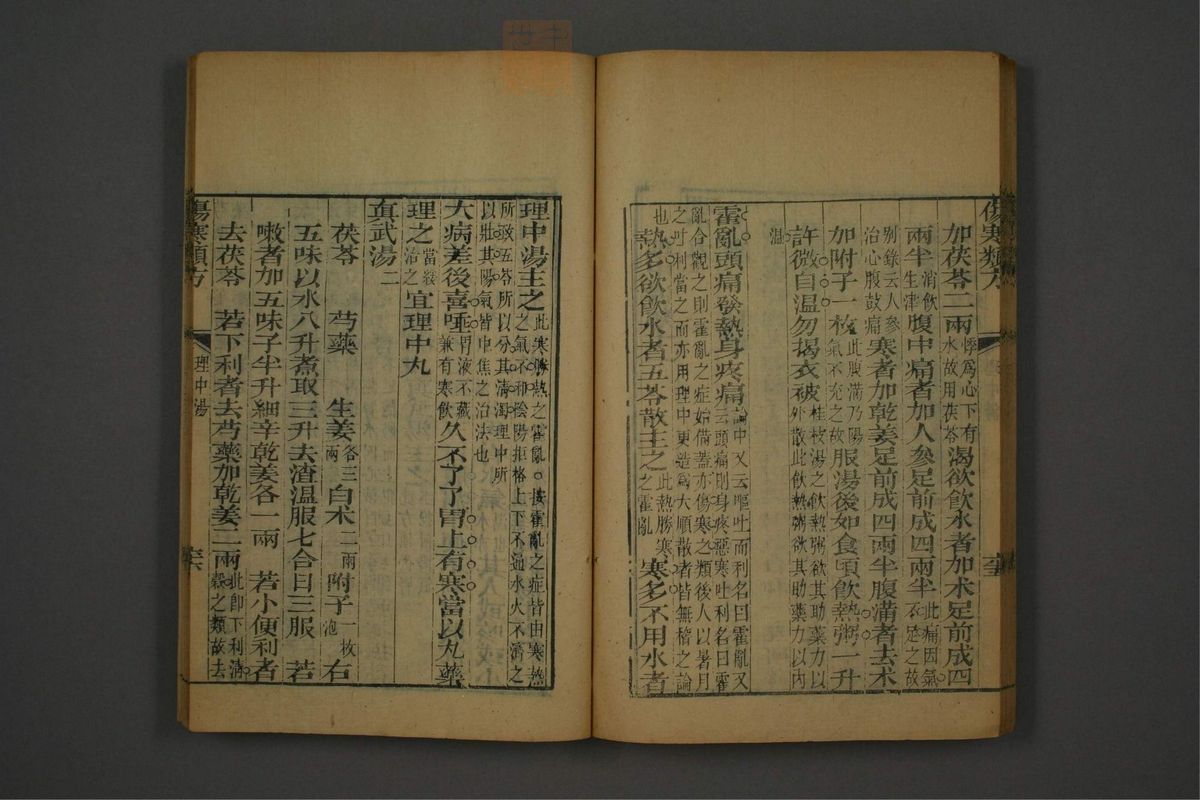 傷寒類方
加茯苓二兩悸爲心下有水故用茯苓渴欲飲水者加朮足前成四
兩半消飲生津腹中痛者加人參足前成四兩半此痛因氣不足之故
別錄云人參治心腹鼓痛寒者加乾姜足前成四兩半腹滿者去朮
加附子一枚此腹滿乃陽氣不充之故服湯後如食頃飲熱粥一升
許微自温勿揭衣被桂枝湯之飲熱粥欲其助藥力以外散此飲熱粥欲其助藥力以内
温
霍亂頭痛發熱身疼痛論中又云嘔吐而利名曰霍亂又云頭痛則身疼惡寒吐利名曰霍
亂合觀之則霍亂之症始備蓋亦傷寒之類後人以暑月之吐利當之而亦用理中更造爲大順散者皆無稽之論
也熱多欲飲水者五苓散主之此熱勝寒之霍亂寒多不用水者
理中湯主之此寒勝熱之霍亂按霍亂之症皆由寒熱之氣不和陰陽拒格上下不通水火不濟之
所致五苓所以分其清濁理中所以壯其陽氣皆中焦之治法也
大病差後喜唾胃液不藏兼有寒飲久不了了胃上有寒當以丸藥
理之當緩治之宜理中丸
真武湯二
茯苓 芍藥 生姜各三兩白朮二兩附子一枚泡右
五味以水八升煮取三升去渣温服七合日三服 若
嗽者加五味子半升細辛乾姜各一兩 若小便利者
去茯苓 若下利者去芍藥加乾姜二兩此即下利清穀之類故去
傷寒類方
理中湯